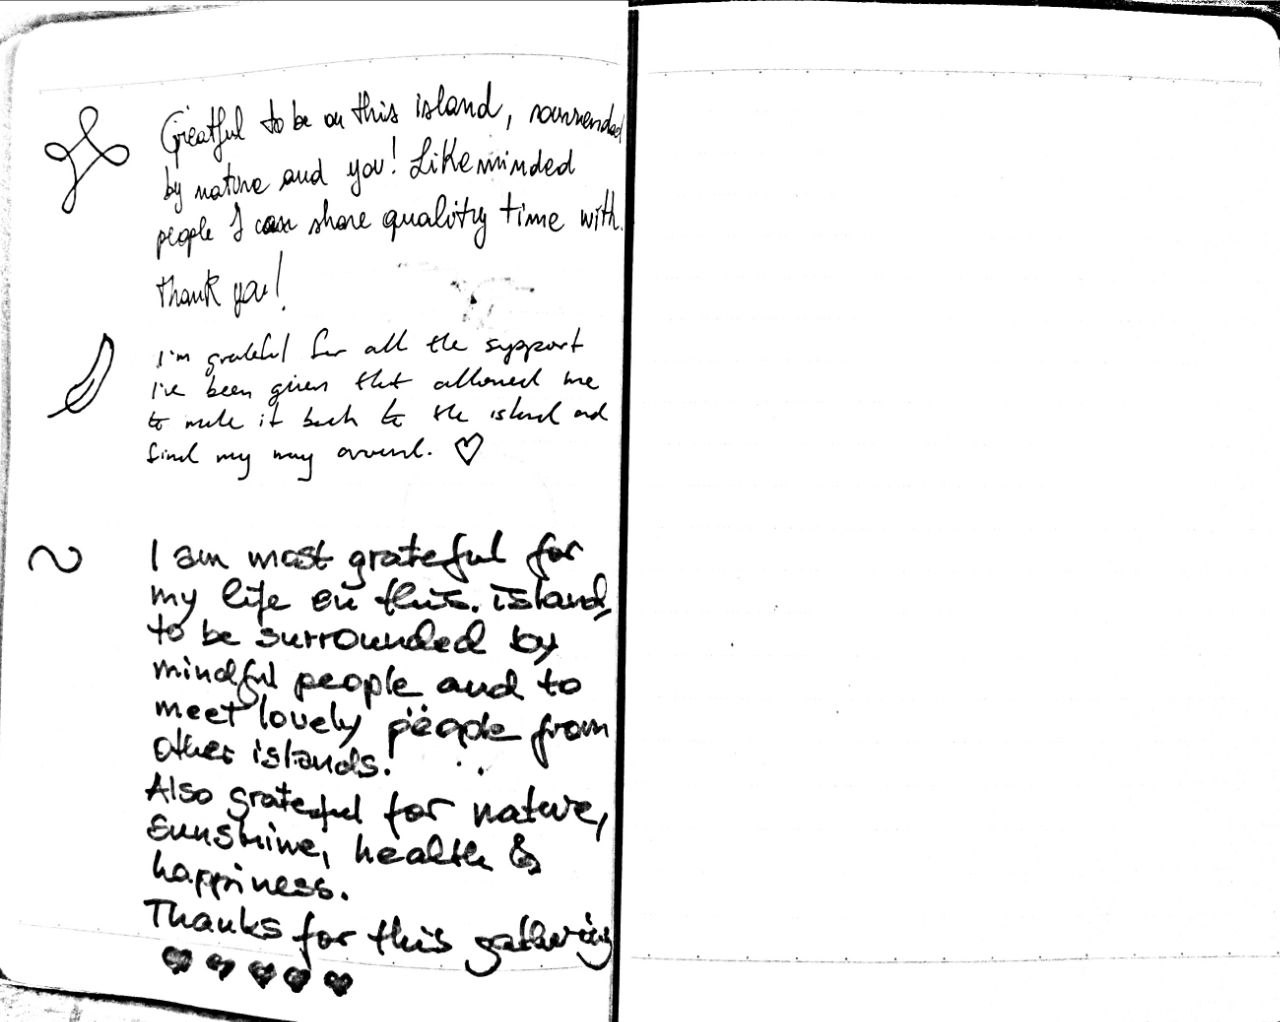 Greatful to be on this island, sourrended
by nature and you! Likeminded
people I can share quality time with.
thank you!
I'm grateful for all the support
I've been given that allowed me
to make it back to the island and
find my way around. ♡
~
I am most grateful for
my life on this. island,
to be surrounded by
mindful people and to
meet lovely people from
other islands.
Also grateful for nature,
sunshine, health &
happiness.
Thanks for this gathering
♥ ♥ ♥ ♥ ♥